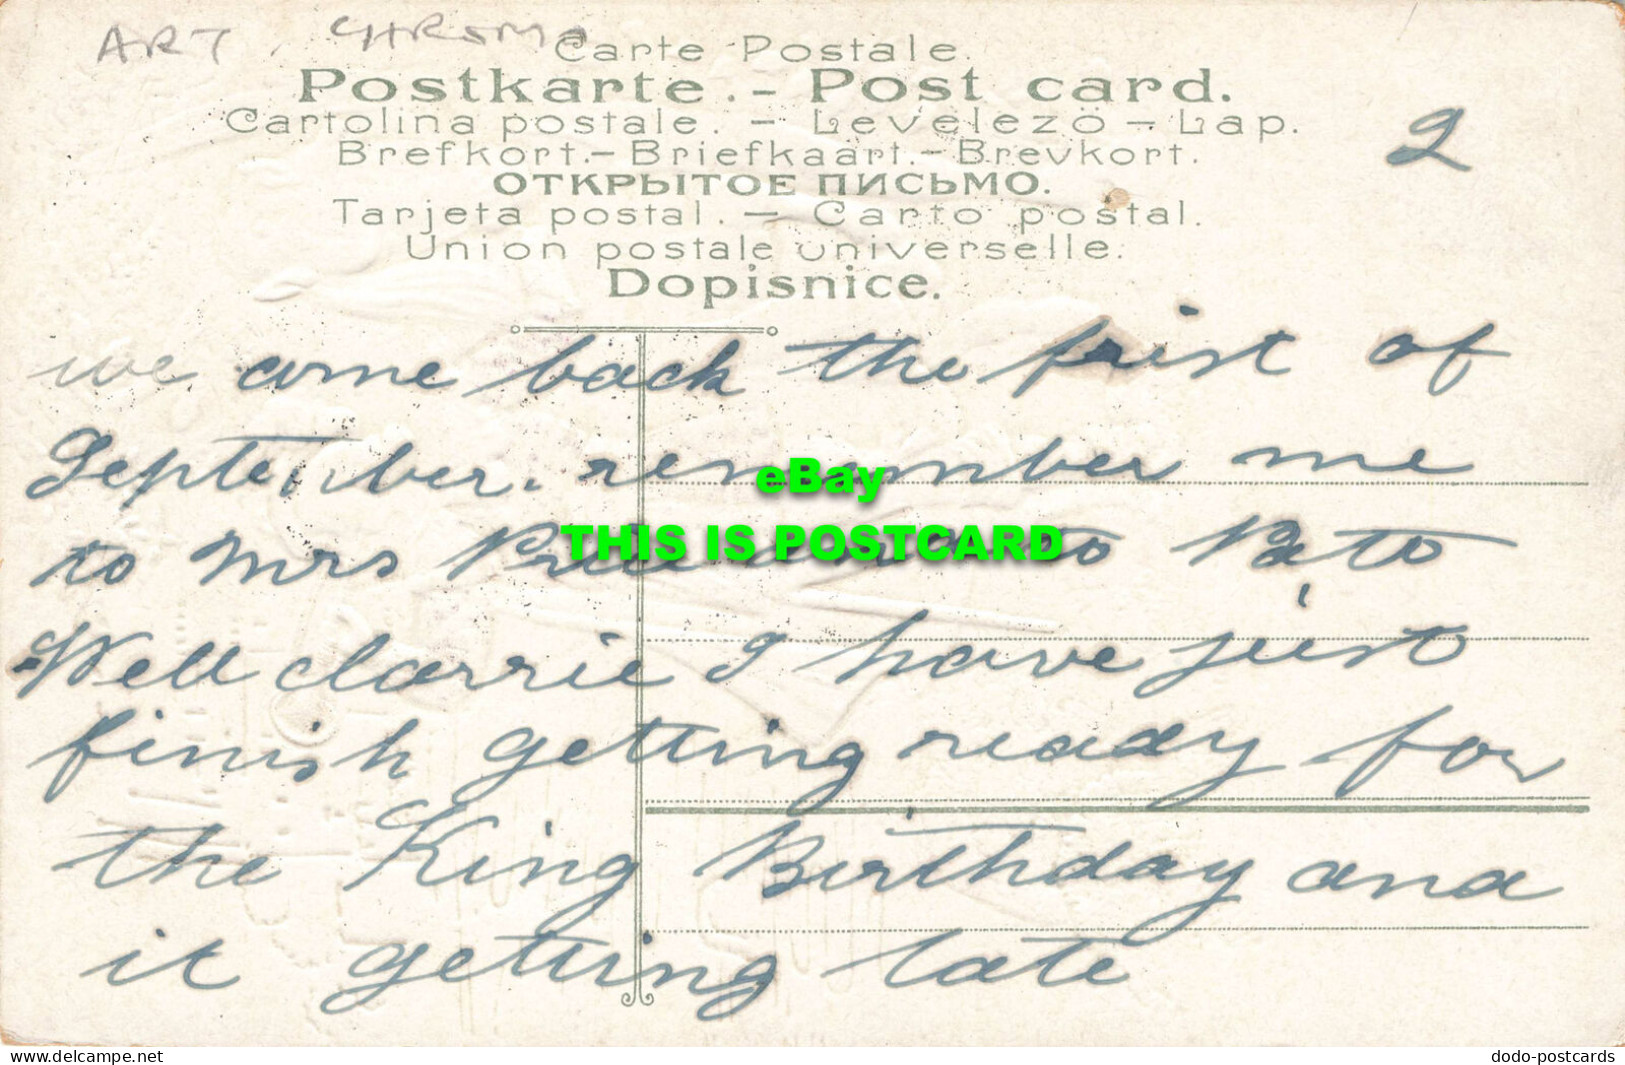 ART CHROMO
Carte Postale.
Postkarte. - Post card.
Cartolina postale. - Levelező - Lap.
2
Brefkort. - Briefkaart. - Brevkort.
ОТКРЫТОЕ ПИСЬМО.
Tarjeta postal. - Carto postal.
Union postale universelle.
Dopisnice.
we come back the frist of
September. remember me
eBay
to Mrs to
THIS IS POSTCARD
Well clarrie I have just
finish getting ready for
the King Birthday and
it getting late
www.delcampe.net
dodo-postcards